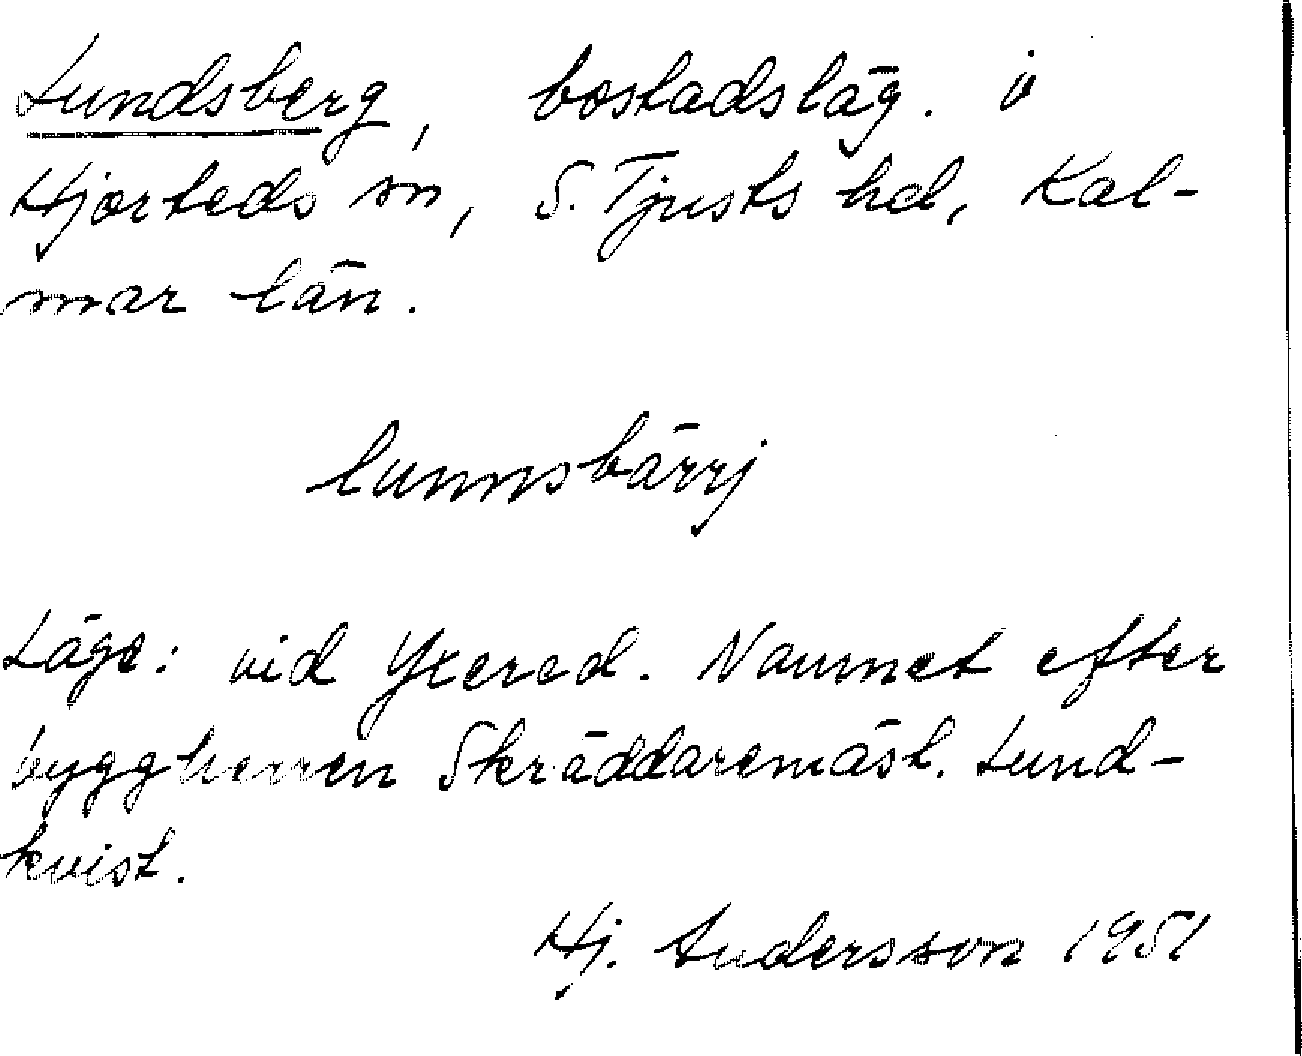 Lundsberg, bostadsläg. i
Hjorteds sn, S. Tjusts hd, Kal-
mar län.
lunnsbärrj
Läge: vid Yxered. Namnet efter
byggherren Skräddaremäst. Lund-
kvist.
Hj. Andersson 1951